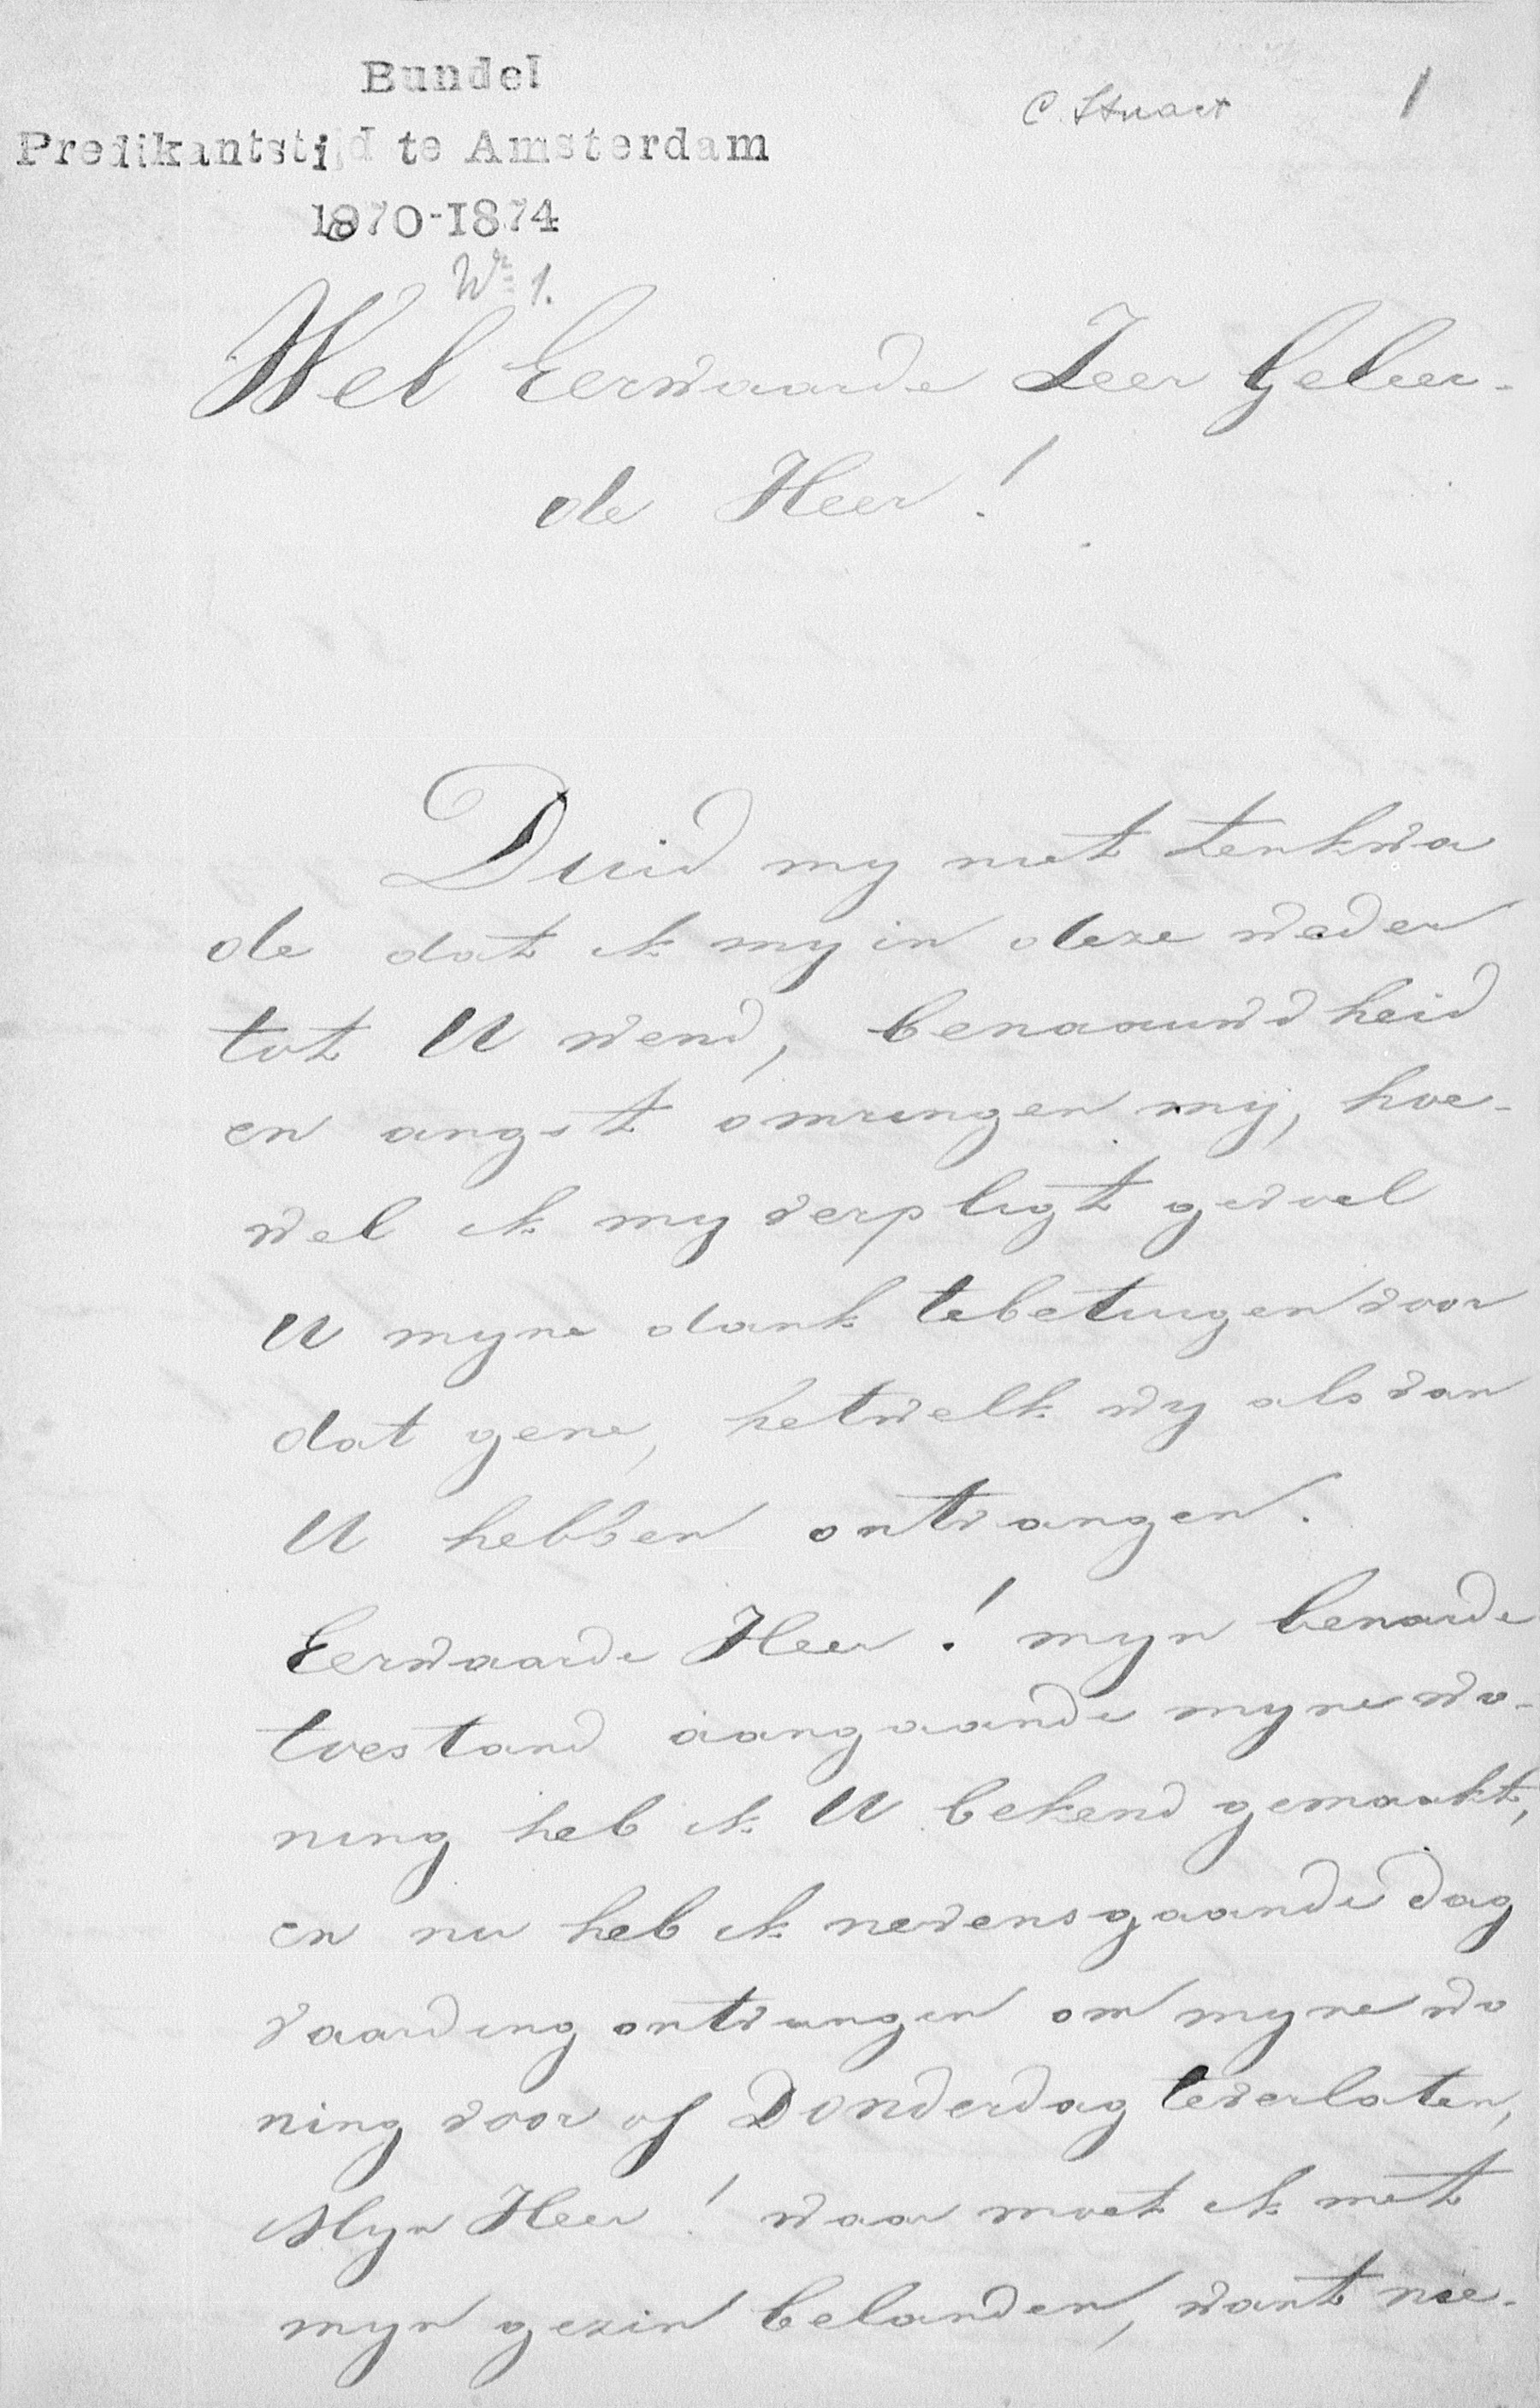 Bundel
Predikantstijd te Amsterdam
1870-1874
C. Stuart
1
Nr 1.
Wel Eerwaarde Zeer Geleer-
de Heer!
Duid my niet tenkwa
de dat ik my in deze weder
tot U wend, benaauwdheid
en angst omringen mij, hoe-
wel ik my verpligt gevoel
U myne dank tebetuigen voor
dat gene, hetwelk wy als van
U hebben ontvangen.
Eerwaarde Heer! myn benarde
toestand aangaande myne wo-
ning heb ik U bekend gemaakt,
en nu heb ik nevensgaande dag
vaarding ontvangen om myne wo
ning voor of Donderdag teverlaten,
Myn Heer! waar moet ik met
myn gezin belanden, want nie-